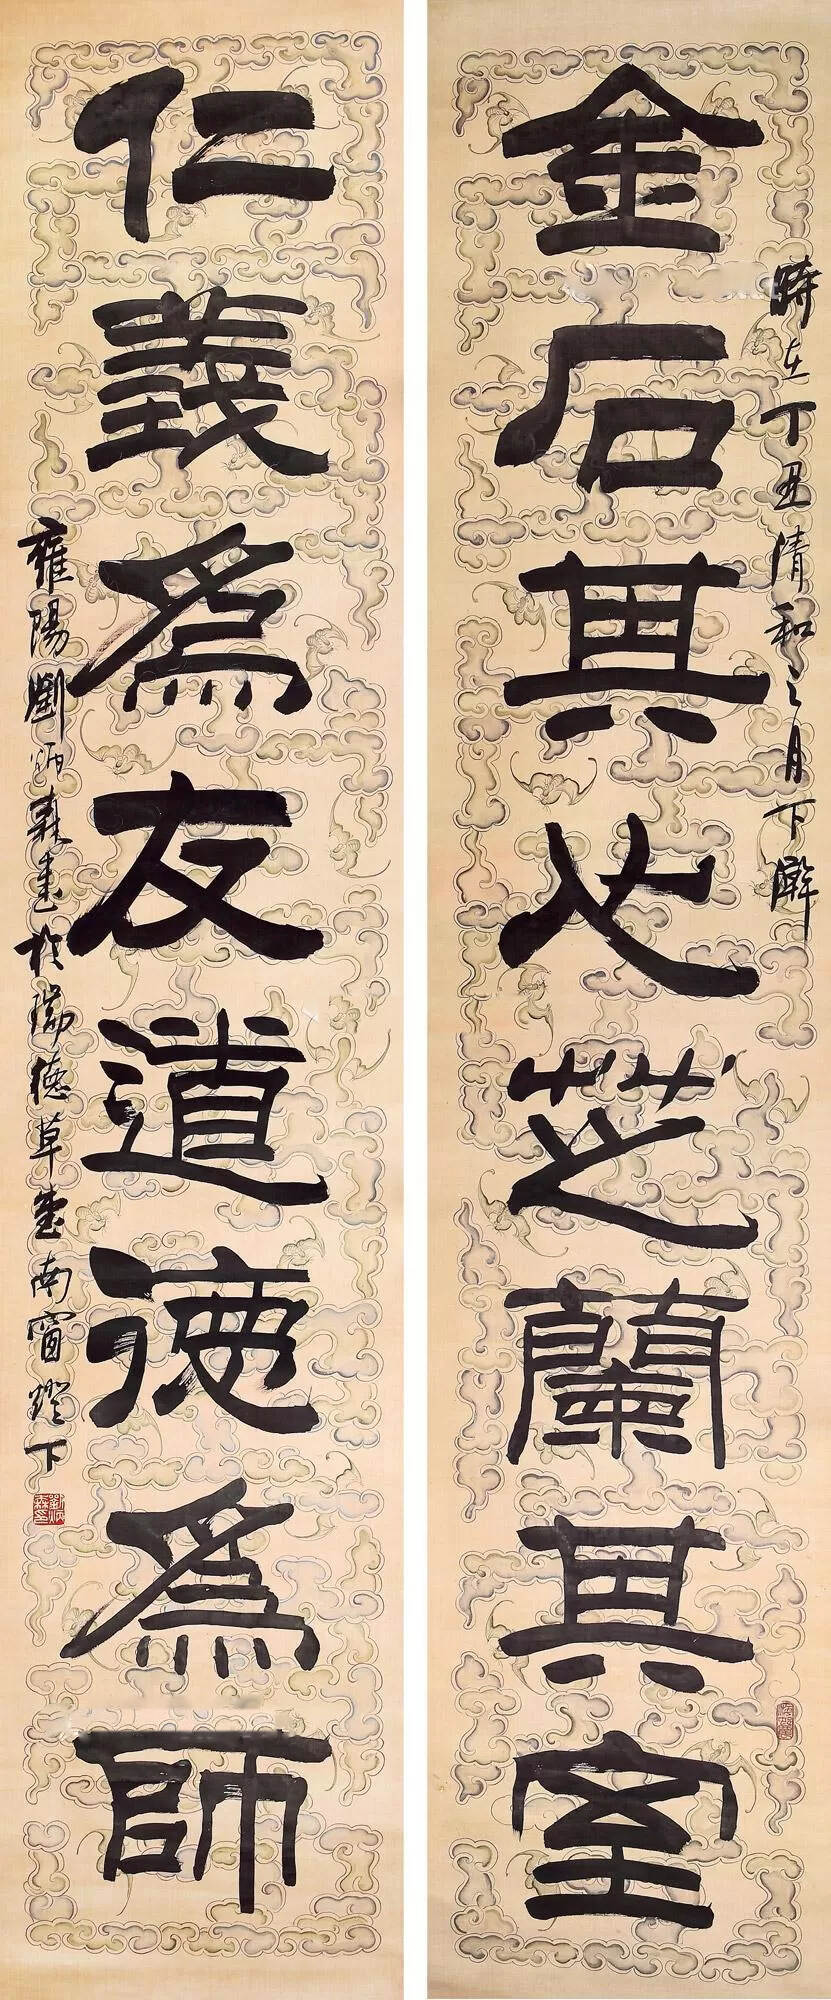 金石其心芝蘭其室
時在丁丑清和之月下澣
仁義為友道德為師
雍陽劉炳森書於瑞德草堂南窗燈下
劉炳森印